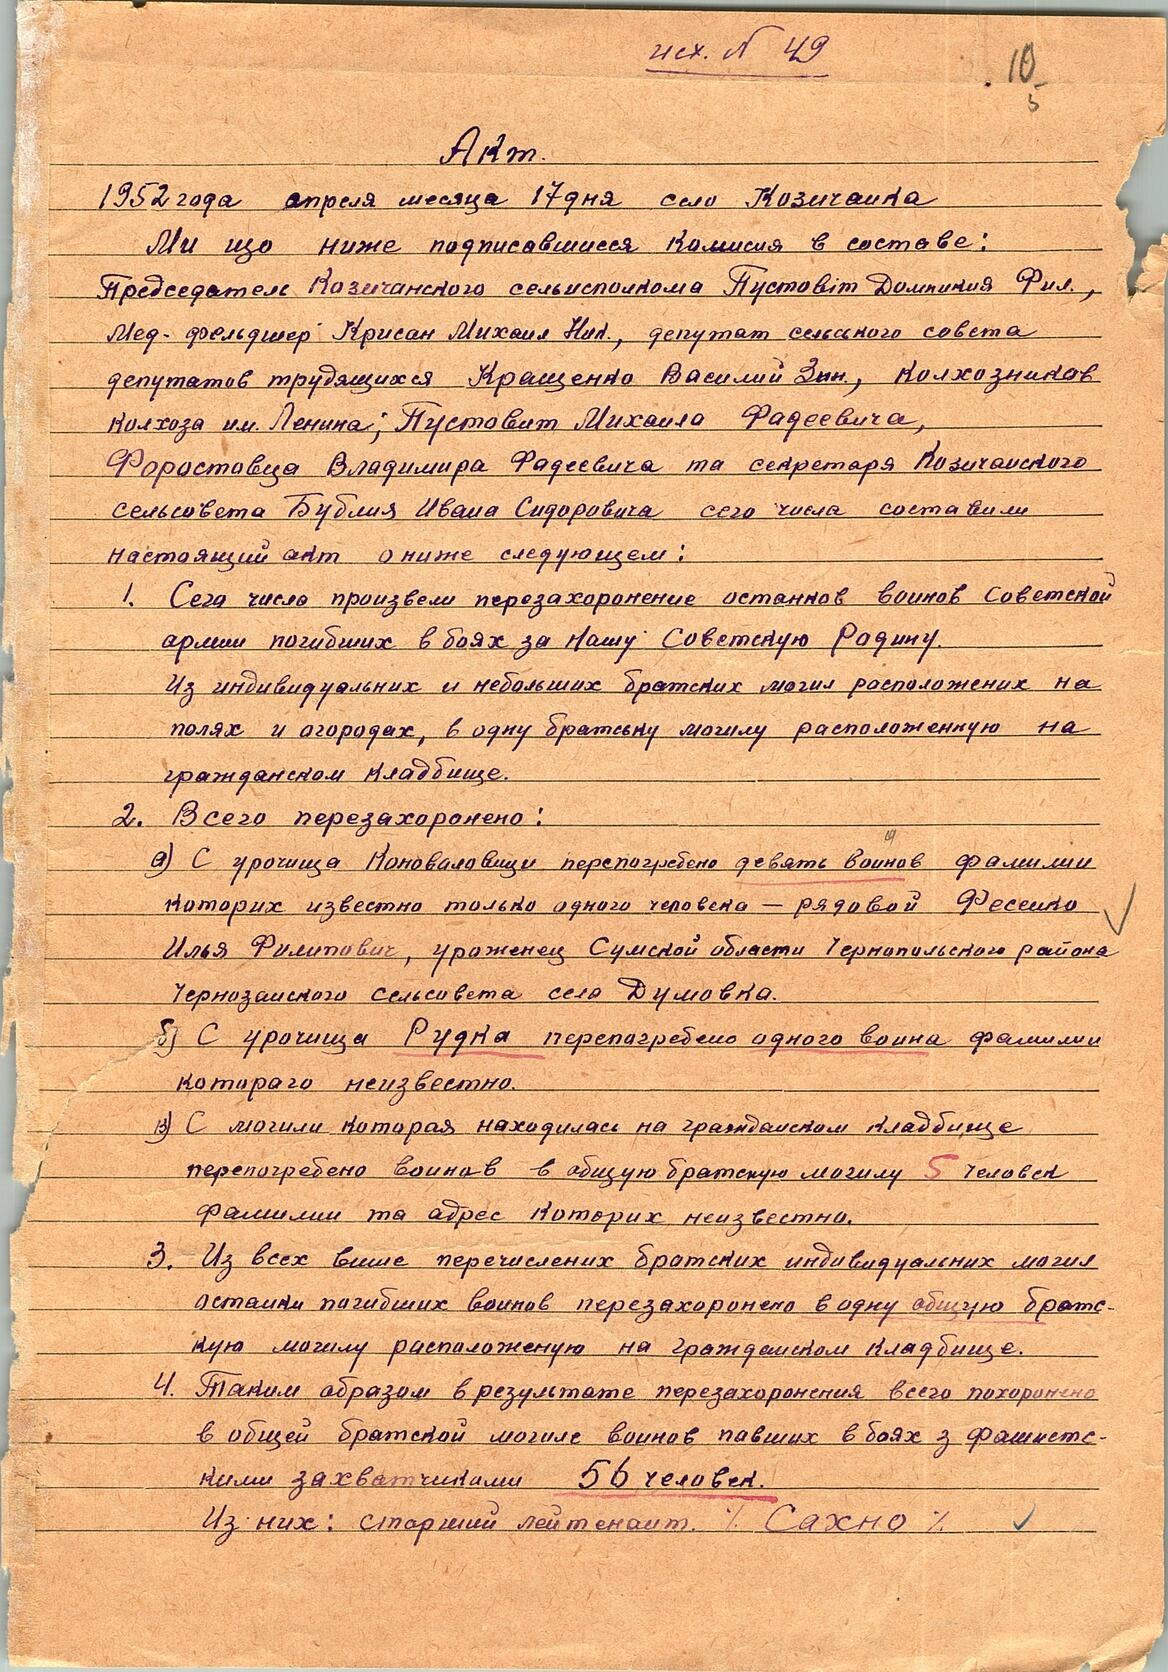 исх. N 49
10
5
Акт.
1952 года апреля месяца 17 дня село Козичанка
Ми що ниже подписавшиеся Комисия в составе:
Председатель Козичанского сельисполкома Пустовіт Домникия Фил.,
Мед-фельдшер Крисан Михаил Ник., депутат сельского совета
депутатов трудящихся Кращенко Василий Зин., колхозников
колхоза им. Ленина; Пустовит Михаила Фадеевича,
Форостовца Владимира Фадеевича та секретаря Козичанского
сельсовета Бублия Ивана Сидоровича сего числа составили
настоящий акт о ниже следующем:
1. Сего число произвели перезахоронение останков воинов Советской
армии погибших в боях за Нашу Советскую Родину.
Из индивидуальних и небольших братских могил расположених на
полях и огородах, в одну братську могилу расположенную на
гражданском кладбище.
2. Всего перезахоронено:
а) С урочища Коноваловщи перепогребено девять воинов фамилии
которих известно только одного человека — рядовой Фесенко
Илья Филипович, уроженец Сумской области Чернопольского района
Чернозанского сельсовета село Думовка.
б) С урочища Рудка перепогребено одного воина фамилии
котораго неизвестно.
в) С могили которая находилась на гражданском кладбище
перепогребено воинов в общую братскую могилу 5 человек
фамилии та адрес которих неизвестно.
3. Из всех више перечислених братских индивидуальних могил
останки погибших воинов перезахоронено в одну общую братс-
кую могилу расположеную на гражданском кладбище.
4. Таким образом в результате перезахоронения всего похоронено
в общей братской могиле воинов павших в боях з фашистс-
кими захватчиками 56 человек.
Из них: старший лейтенант. ٪ Сахно ٪